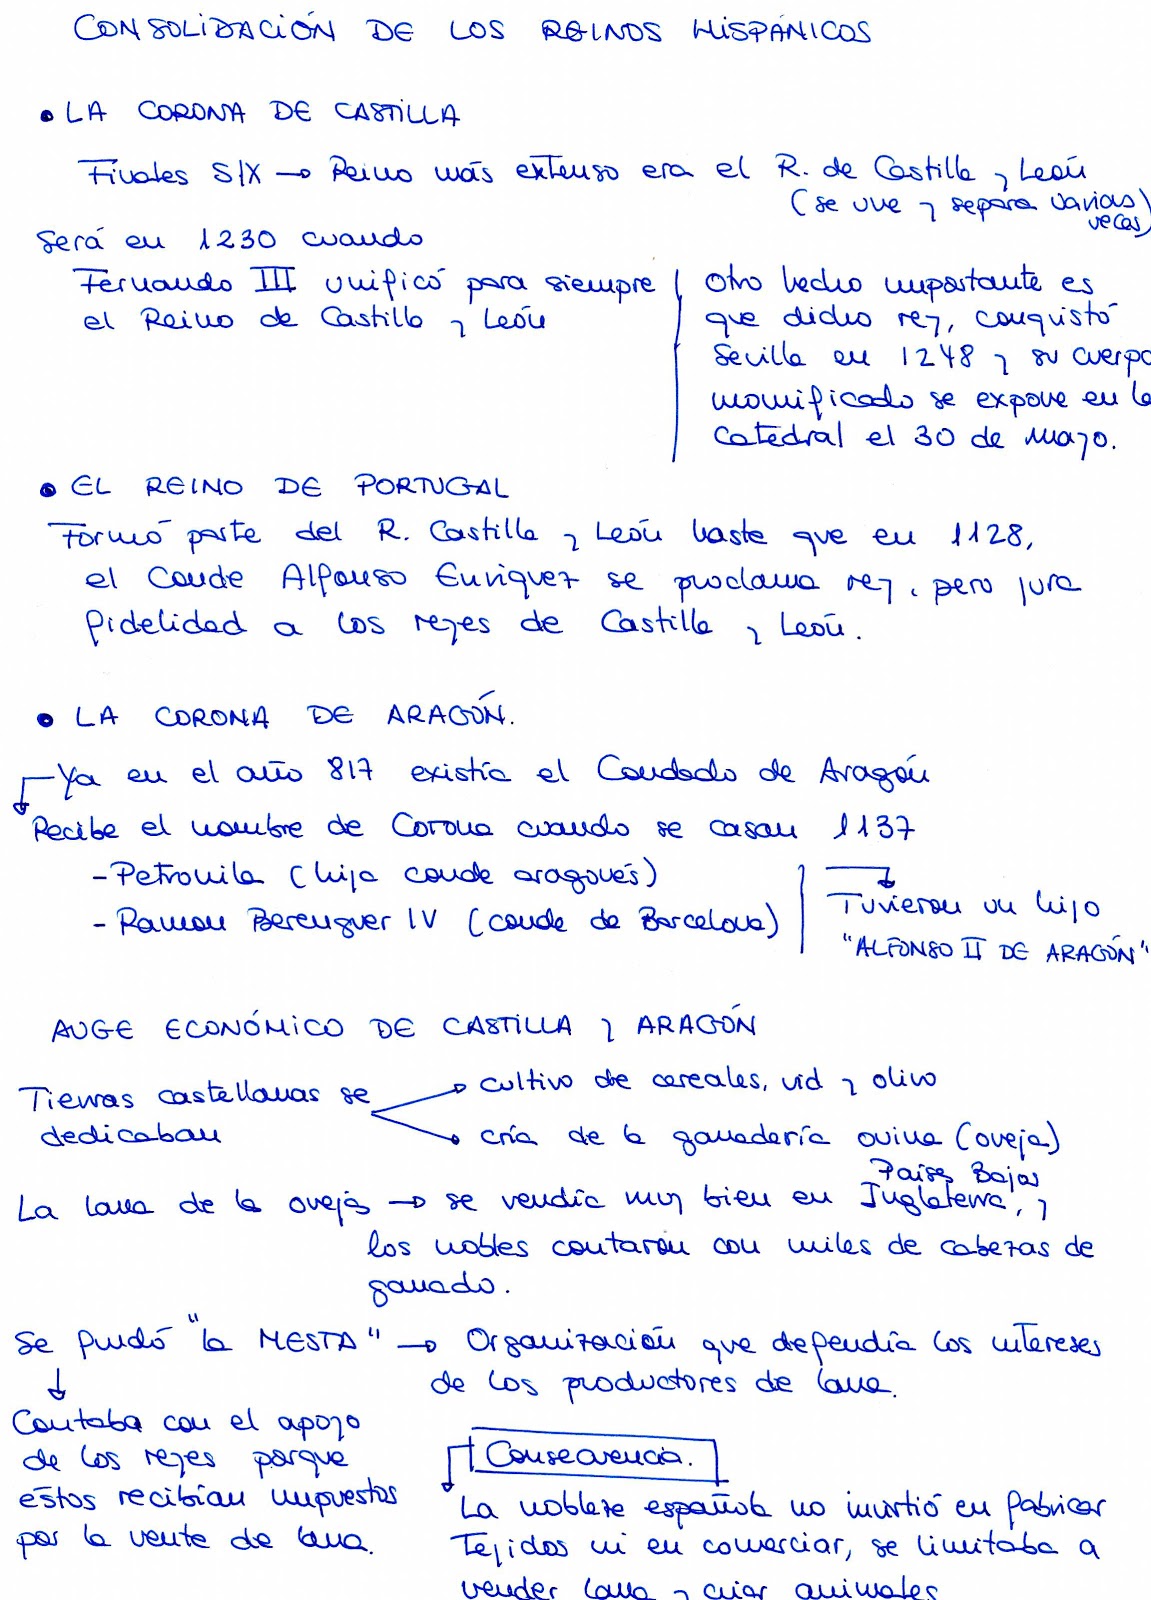 CONSOLIDACIÓN DE LOS REINOS HISPÁNICOS
• LA CORONA DE CASTILLA
Finales SIX → Reino más extenso era el R. de Castilla y León
(se une y separa varias
veces)
Será en 1230 cuando
Fernando III unificó para siempre
el Reino de Castilla y León
Otro hecho importante es
que dicho rey, conquistó
Sevilla en 1248 y su cuerpo
momificado se expone en la
catedral el 30 de mayo.
• EL REINO DE PORTUGAL
Formó parte del R. Castilla y León hasta que en 1128,
el Conde Alfonso Enriquez se proclama rey, pero jura
fidelidad a los reyes de Castilla y León.
• LA CORONA DE ARAGÓN.
Ya en el año 817 existía el Condado de Aragón
Recibe el nombre de Corona cuando se casan 1137
- Petronila (hija conde aragonés)
- Ramon Berenguer IV (conde de Barcelona)
Tuvieron un hijo
"ALFONSO II DE ARAGÓN"
AUGE ECONÓMICO DE CASTILLA y ARAGÓN
Tierras castellanas se
dedicaban
cultivo de cereales, vid y olivo
cría de la ganadería ovina (oveja)
Paises Bajos
La lana de la oveja → se vendía muy bien en Inglaterra, y
los nobles contaron con miles de cabezas de
ganado.
Se fundó "la MESTA" → Organización que defendía los intereses
de los productores de lana.
Contaba con el apoyo
de los reyes porque
éstos recibían impuestos
por la venta de lana.
Consecuencia.
La nobleza española no invirtió en fabricar
Tejidos ni en comerciar, se limitaba a
vender lana y criar animales